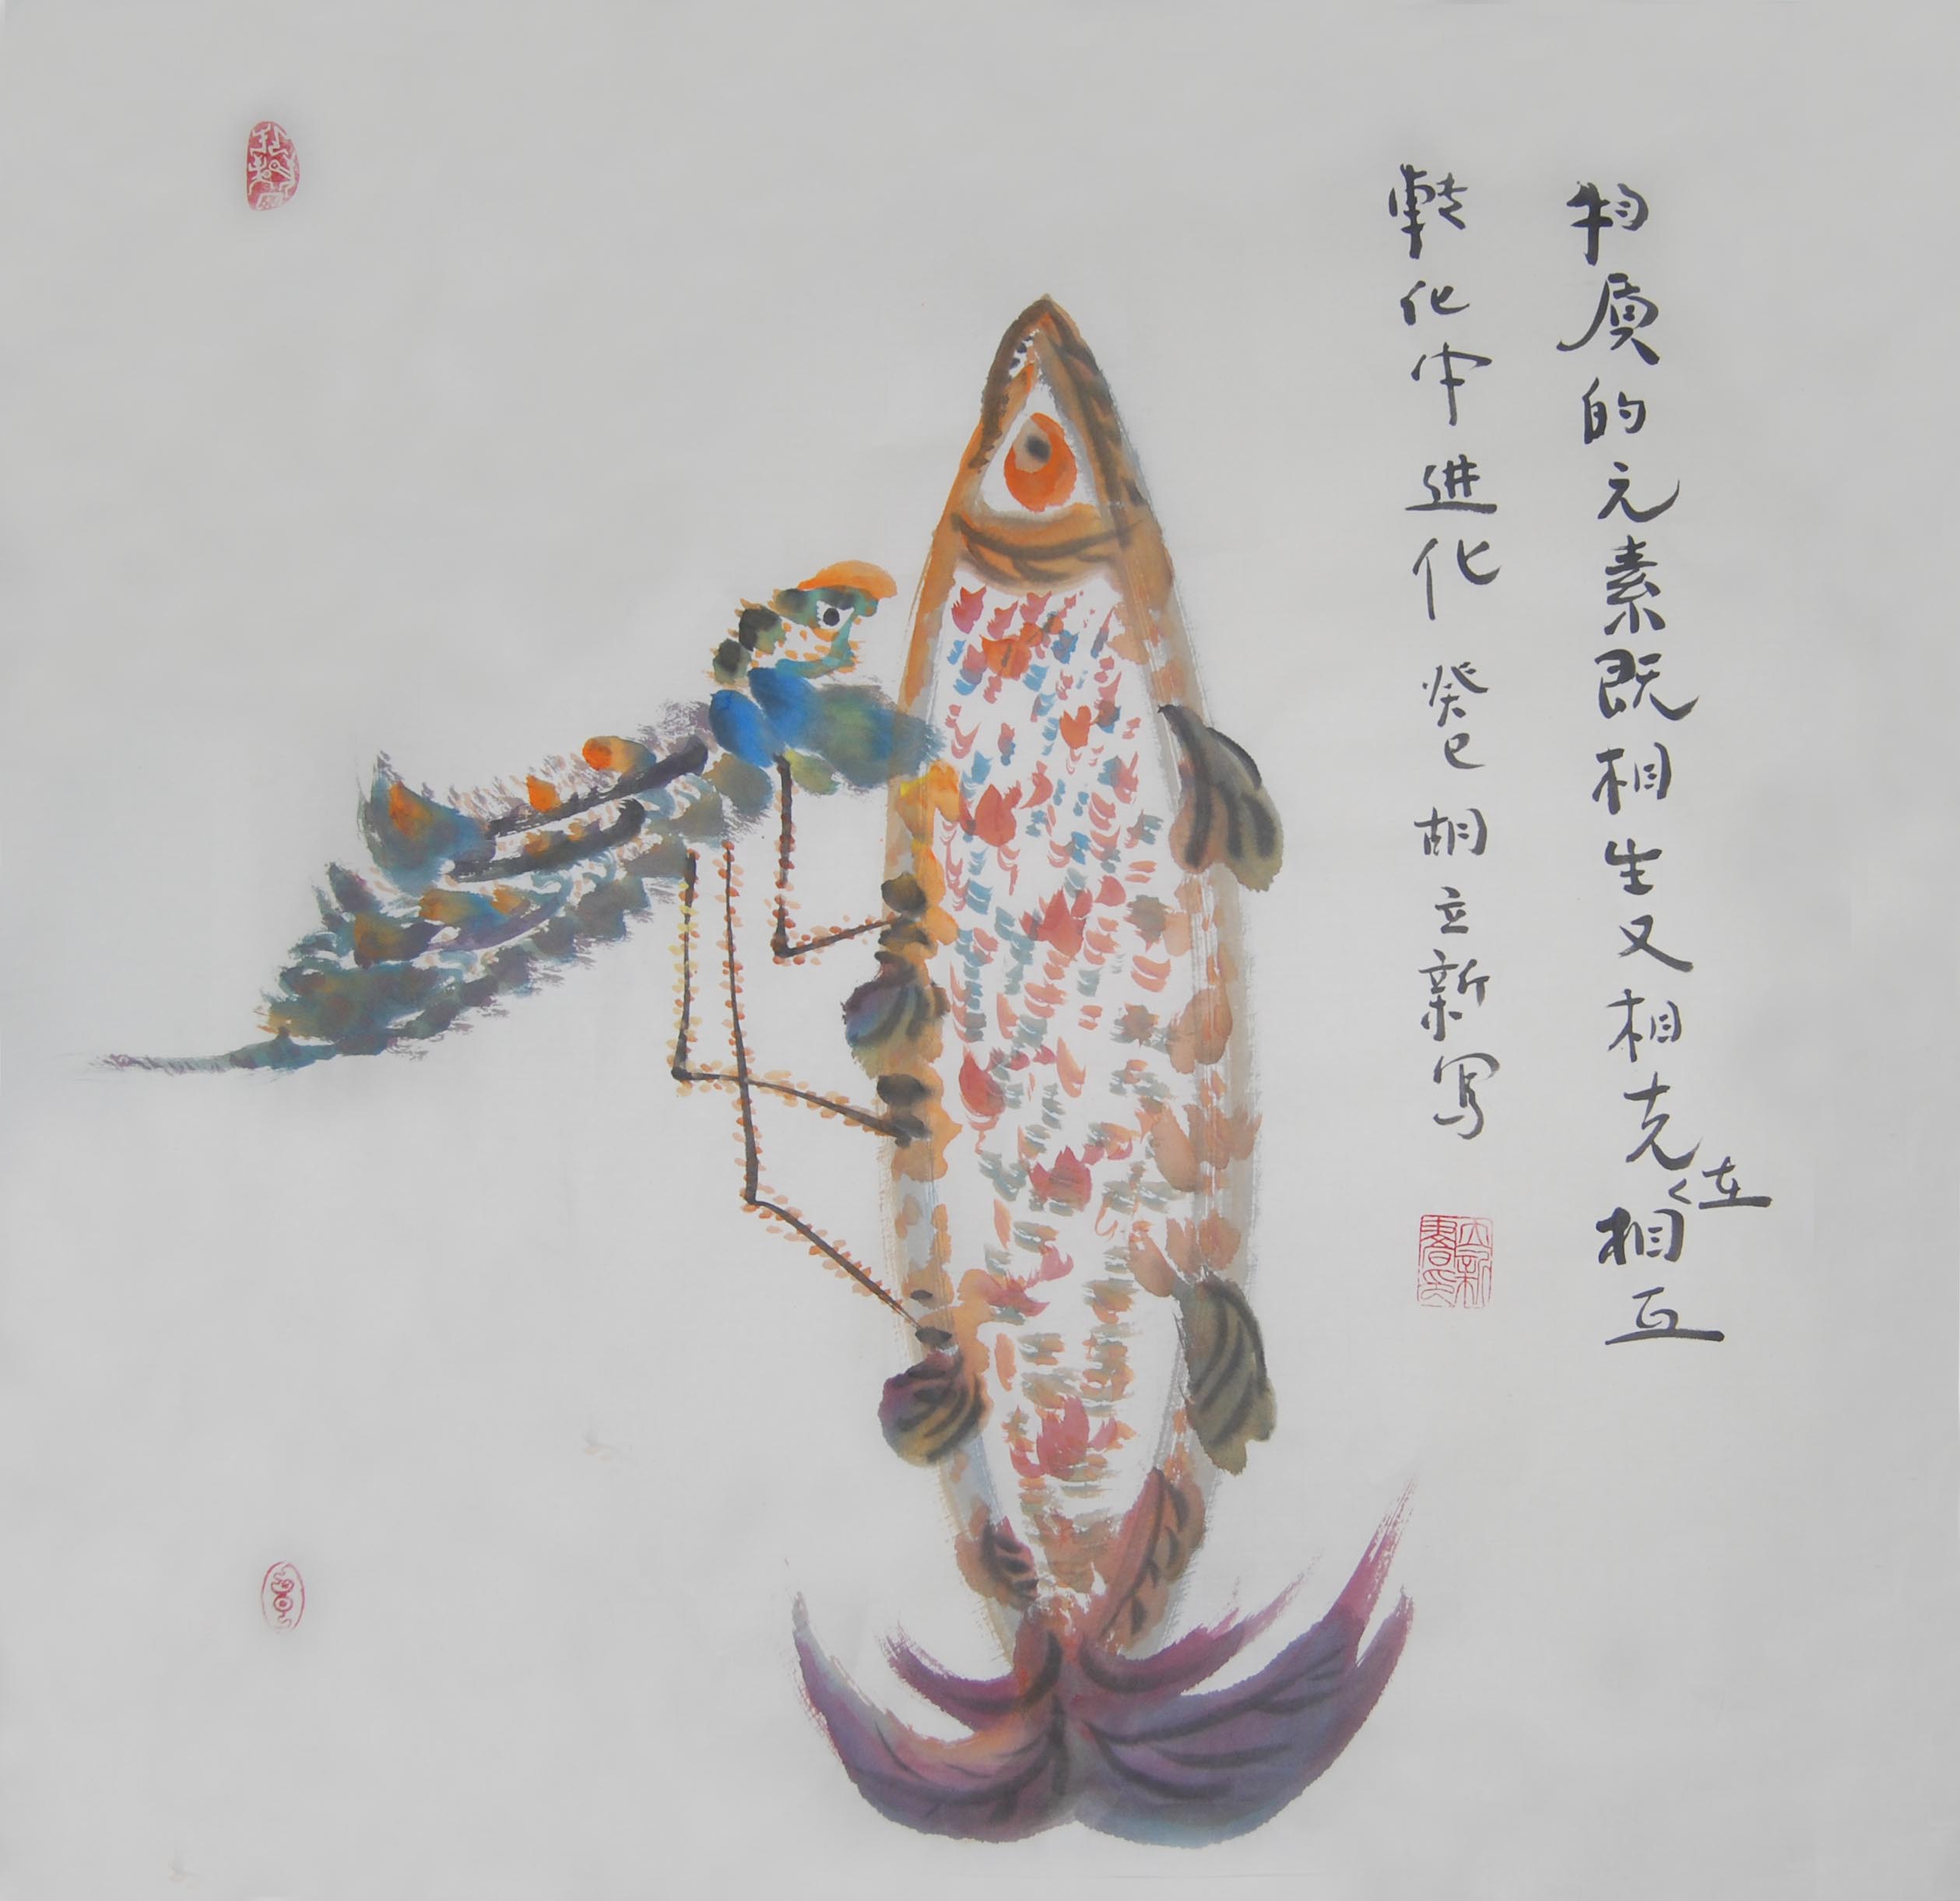 物质的元素既相生又相克在相互
轉化中进化 癸巳 胡立新写